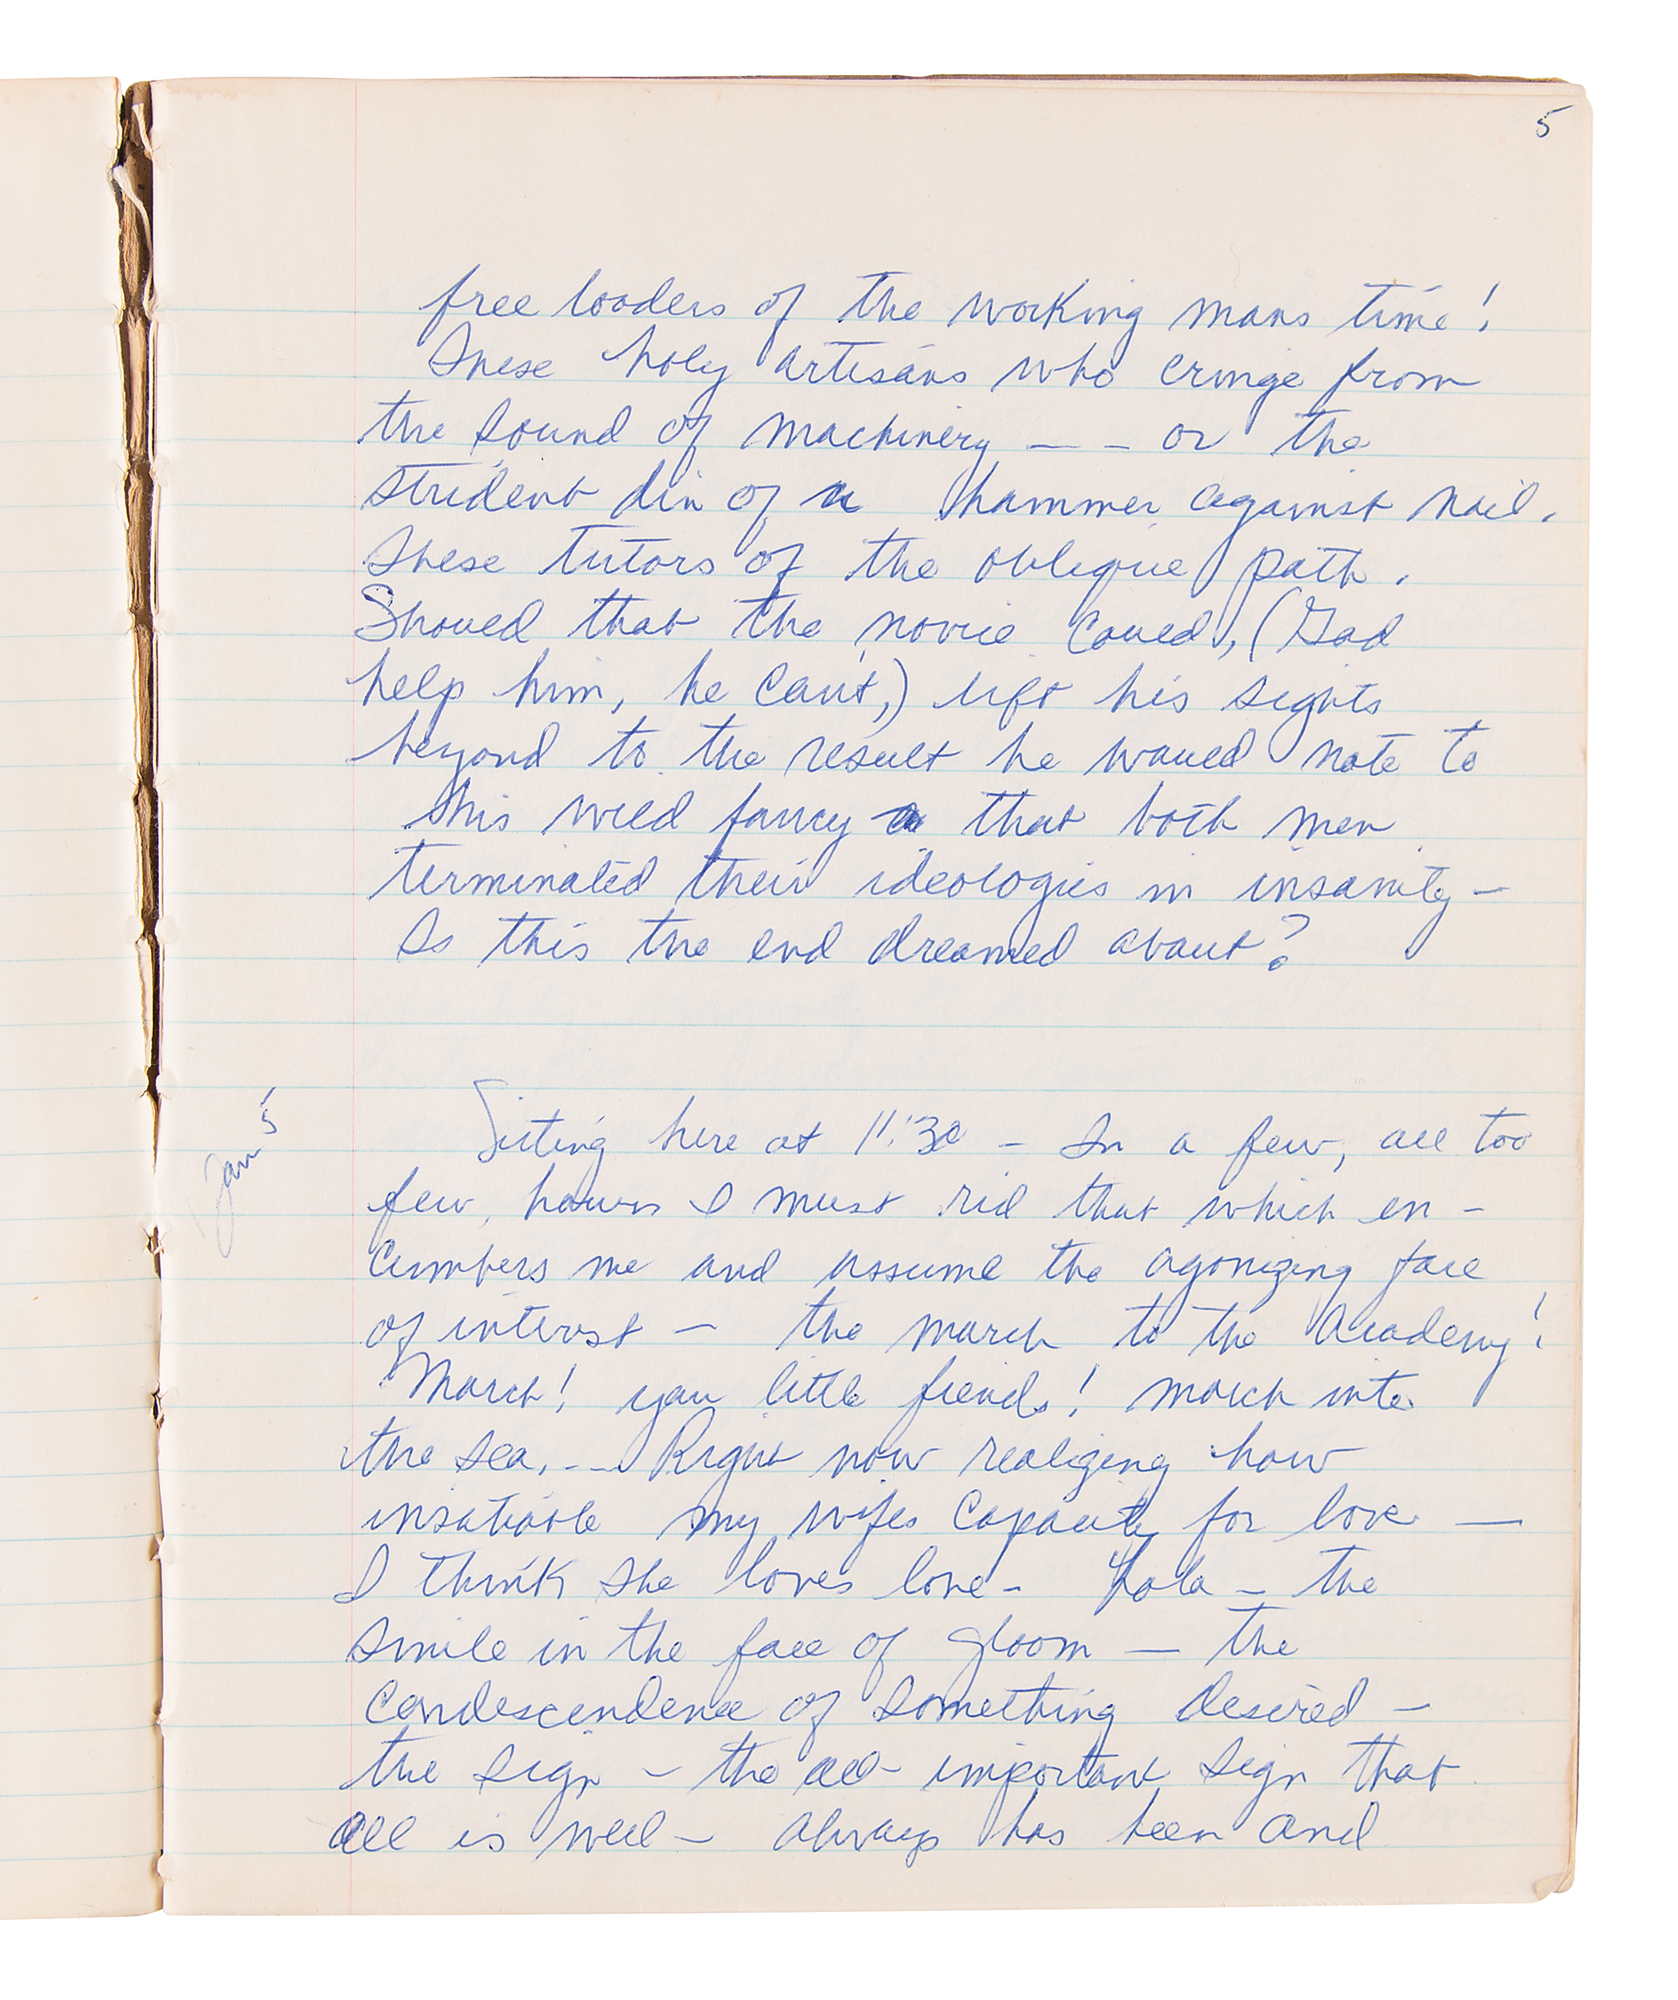 5
free loaders of the working mans time!
These holy artisans who cringe from
the sound of machinery - - or the
strident din of a hammer against nail.
These tutors of the oblique path.
Should that the novice could, (God
help him, he can't,) lift his sights
beyond to the result he would note to
his wild fancy that both men
terminated their ideologies in insanity -
Is this the end dreamed about?
Jan 5
Sitting here at 11:30 - In a few, all too
few, hours I must rid that which en -
cumbers me and assume the agonizing face
of interest - the march to the Academy!
March! you little fiends! march into
the sea. - - Right now realizing how
insatiable my wifes capacity for love -
I think she loves love - Lola - the
smile in the face of gloom - the
condescendence of something desired -
the sign - the all - important sign that
all is well - always has been and